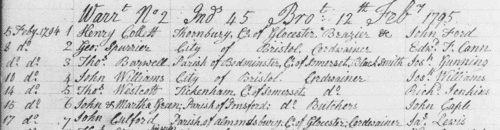 Warrt. No 2 Ind 45 Brot. 12th Feby 1795
5 Feby. 1794 1 Henry Collett Thornbury, C. of Glocester Brazier & John Ford
8 do. 2 Geo. Spurrier City of Bristol. Cordwainer Edwd. T. Cann
do. do. 3 Thos. Barwell Parish of Bedminster, C. of Somerset, Blacksmith Jos. Gunning
10 do. 4 John Williams City of Bristol. Cordwainer Jos. Williams
14 do. 5 Thos. Westcott Tickenham, C. of Somerset do. Richd. Jenkins
15 do. 6 John & Martha Green; Parish of Butchers John Caple
17 do. 7 John Parish of Almondsbury C. of Glocester; Cordwainer Jas. Lewis